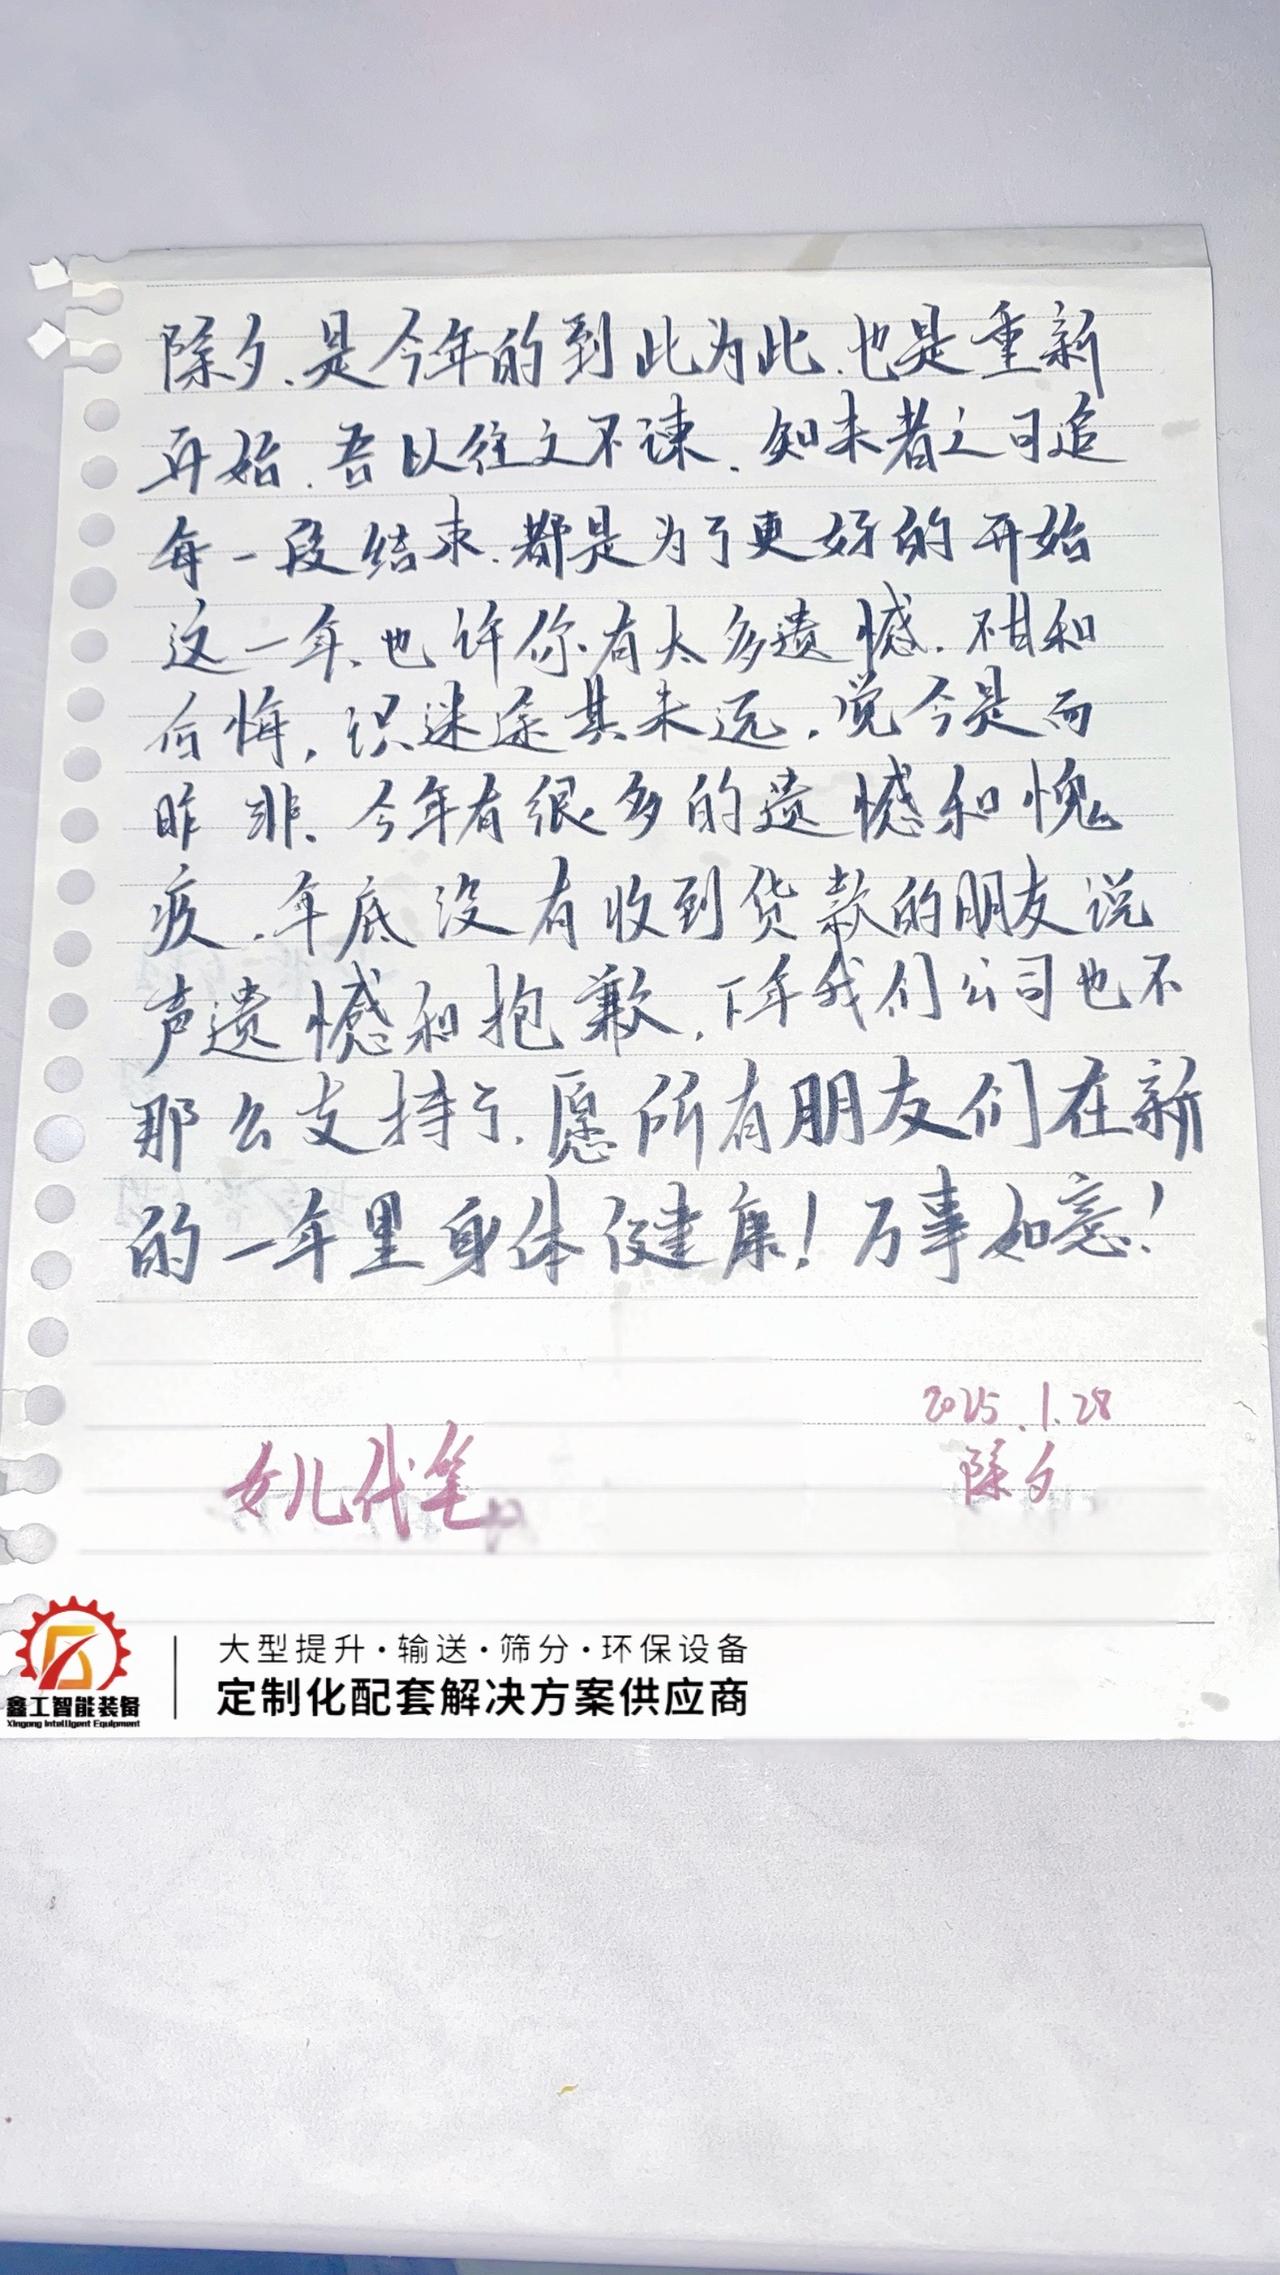 除夕、是今年的到此为此、也是重新
开始、吾以往之不谏、知来者之可追
每一段结束、都是为了更好的开始
这一年、也许你有太多遗憾、不甘和
后悔，识迷途其未远，觉今是而
昨非、今年有很多的遗憾和愧
疚、年底没有收到货款的朋友说
声遗憾和抱歉，下年我们公司也不
那么支持了、愿所有朋友们在新
的一年里身体健康！万事如意！
2025.1.28
女儿代笔
除夕
大型提升·输送·筛分·环保设备
定制化配套解决方案供应商
鑫工智能装备
Xingong Intelligent Equipment